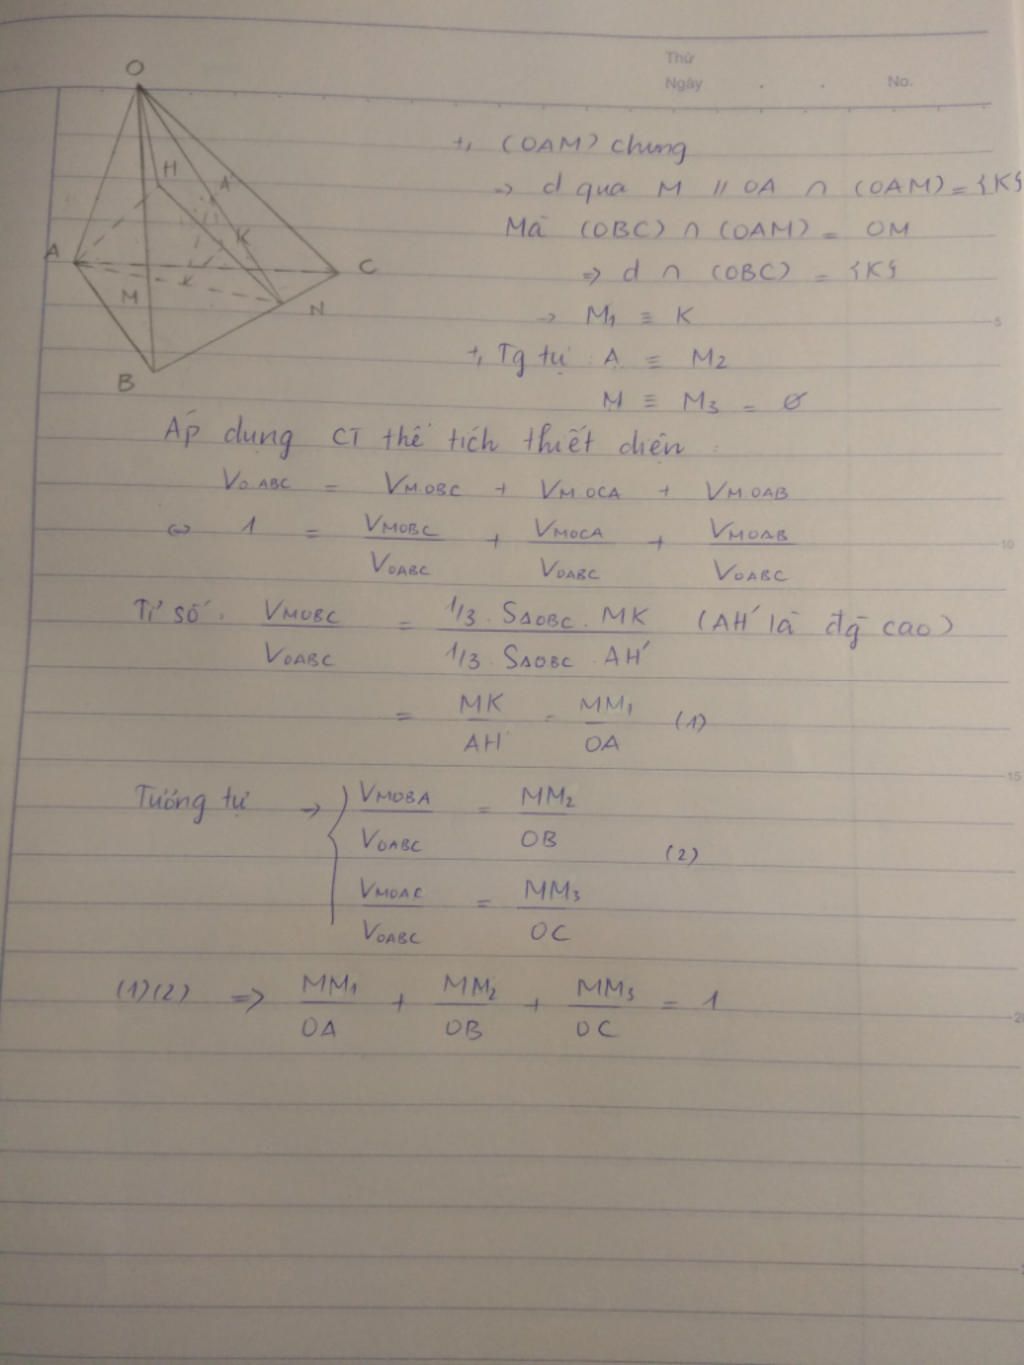 Thứ
Ngày . . No.
O
H
A'
K
A
C
M
N
B
+, (OAM) chung
→ d qua M // OA ∩ (OAM) = {K}
Mà (OBC) ∩ (OAM) = OM
⇒ d ∩ (OBC) = {K}
→ M₁ ≡ K
5
+, Tg tự : A ≡ M₂
M ≡ M₃ = ∅
Áp dụng CT thể tích thiết diện :
V_O.ABC = V_M.OBC + V_M.OCA + V_M.OAB
⇔ 1 = V_MOBC / V_OABC + V_MOCA / V_OABC + V_MOAB / V_OABC
10
Tỉ số : V_MOBC / V_OABC = 1/3 . S_ΔOBC . MK / 1/3 . S_ΔOBC . AH' (AH' là đg cao)
= MK / AH' = MM₁ / OA (1)
15
Tương tự → { V_MOBA / V_OABC = MM₂ / OB
(2)
V_MOAC / V_OABC = MM₃ / OC
(1)(2) ⇒ MM₁ / OA + MM₂ / OB + MM₃ / OC = 1